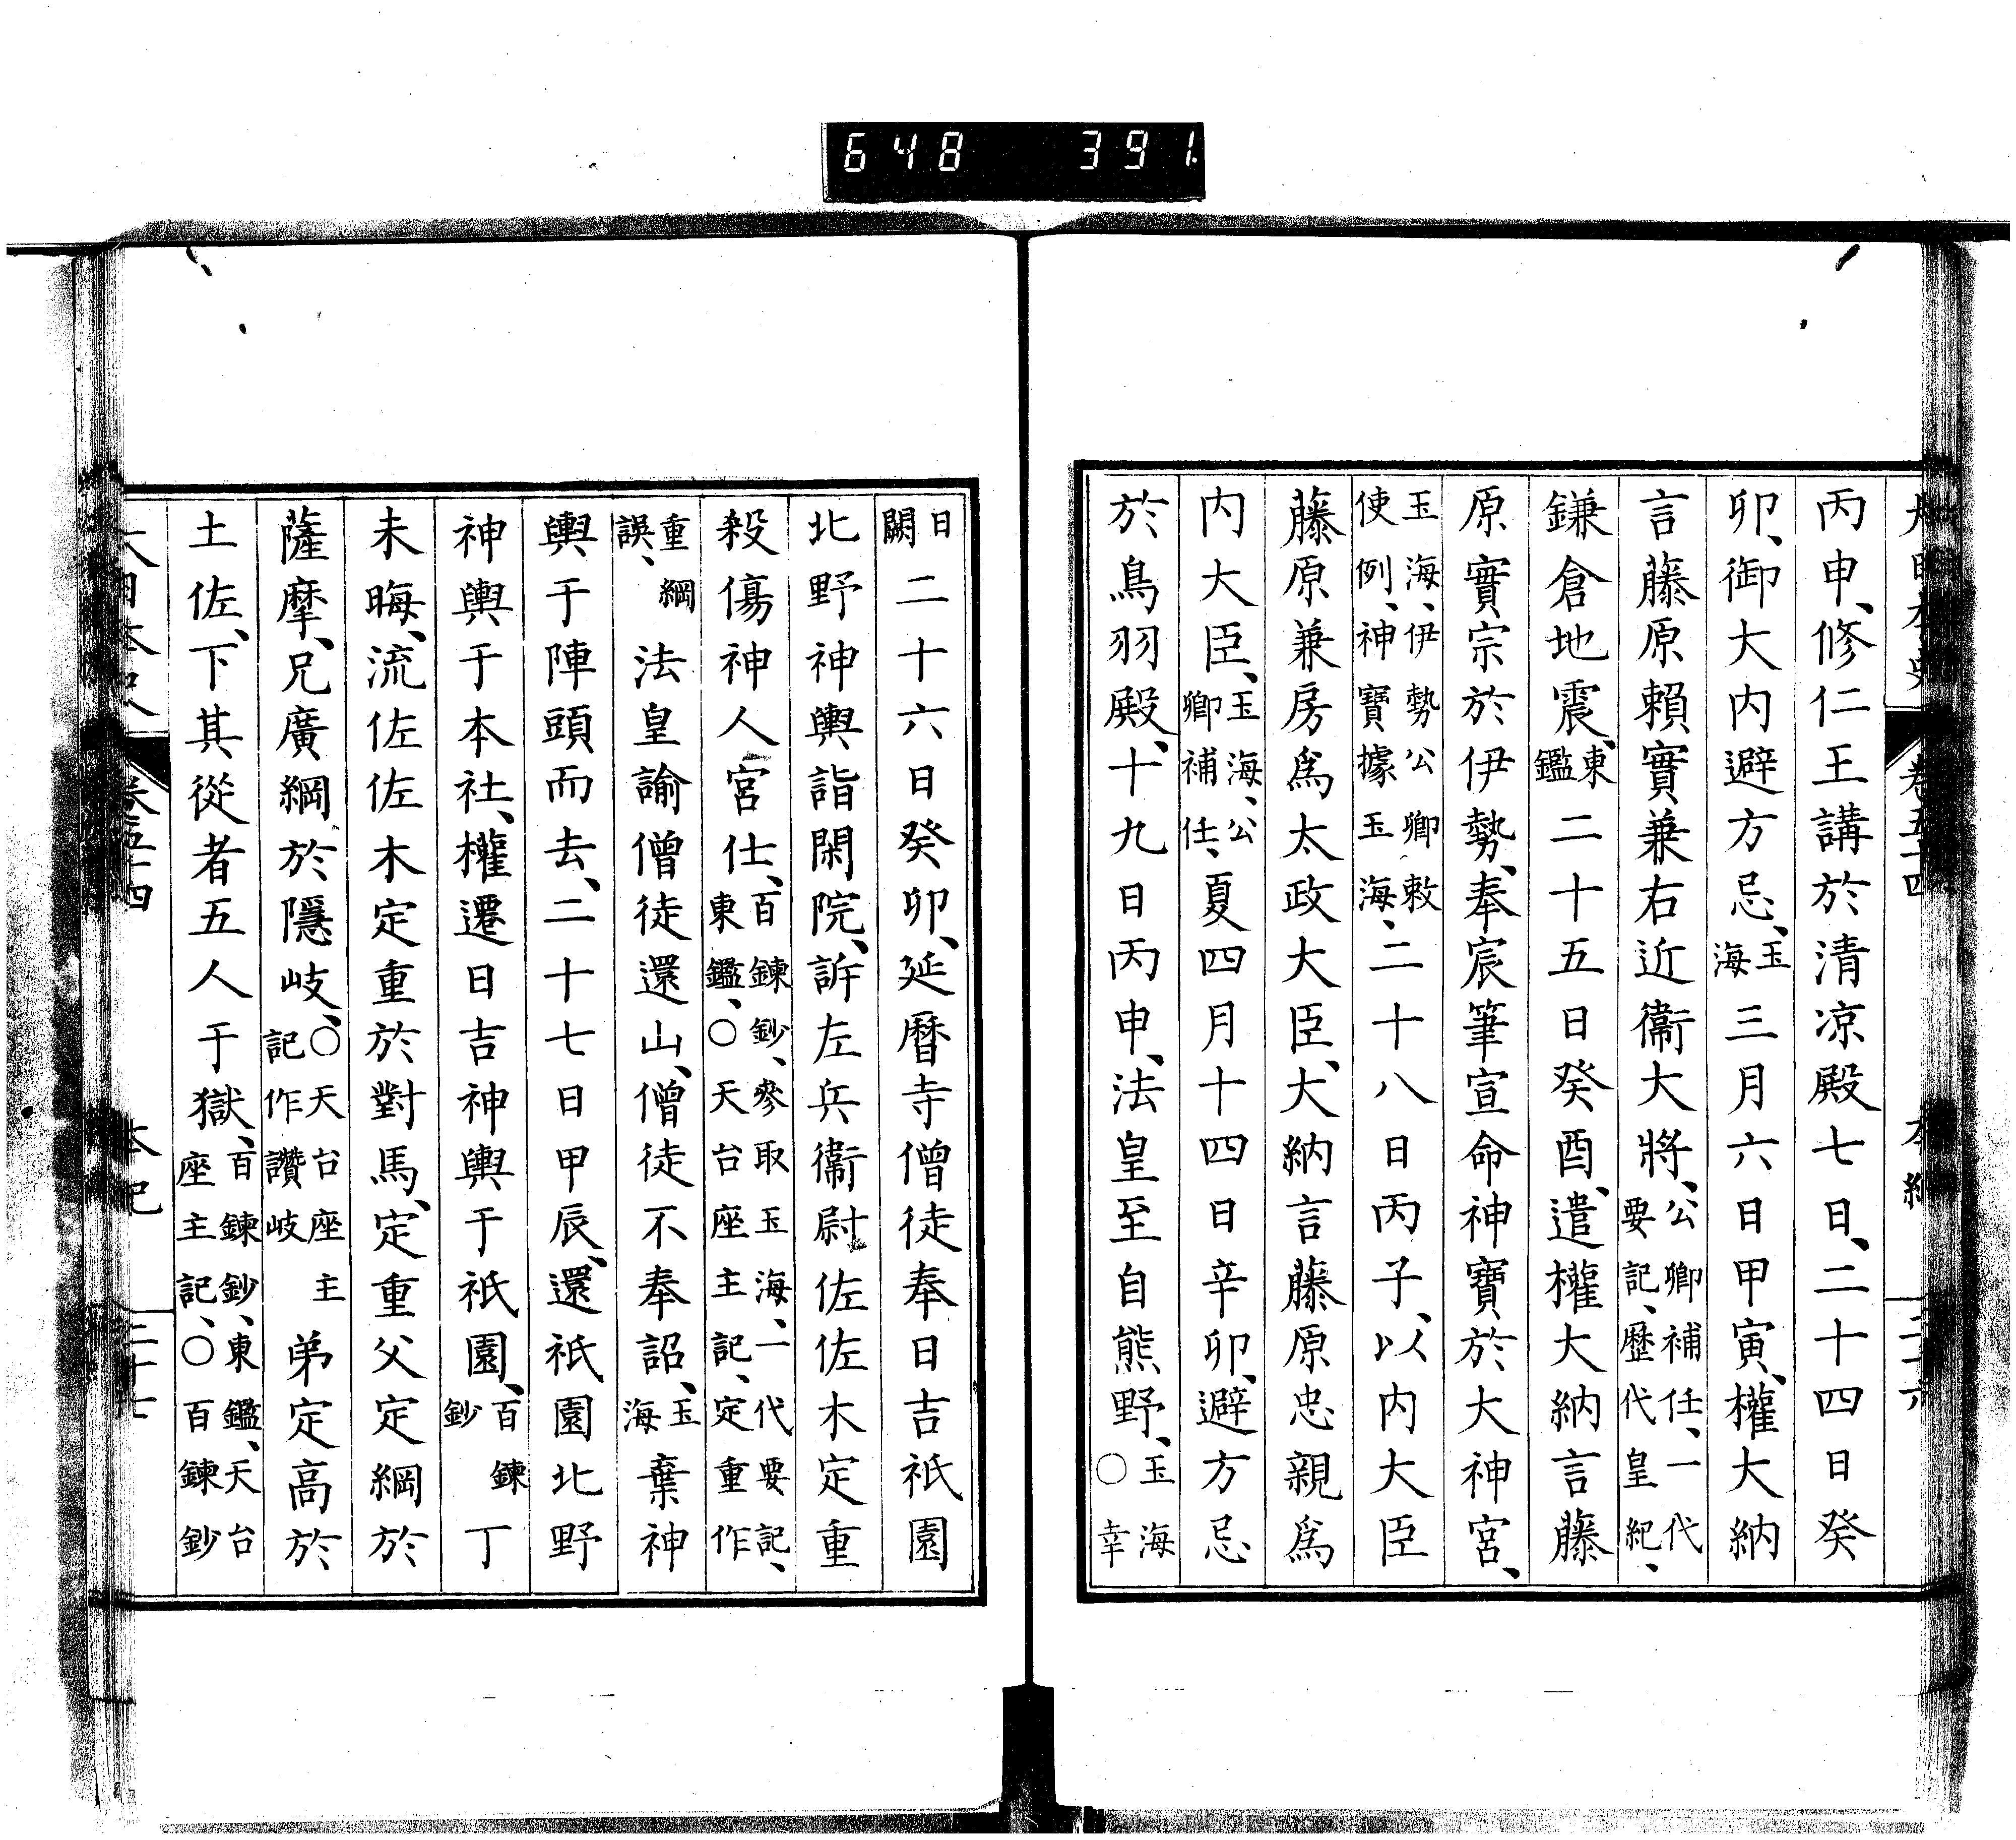 648 391
大日本史 卷五十四 本紀 二十六
丙申、修仁王講於清凉殿七日、二十四日癸
卯、御大内避方忌、玉海三月六日甲寅、權大納
言藤原賴實兼右近衞大將、公卿補任、一代要記、歷代皇紀、
鎌倉地震、東鑑二十五日癸酉、遣權大納言藤
原實宗於伊勢、奉宸筆宣命神寶於大神宮、
玉海、伊勢公卿敕使例、神寶據玉海、二十八日丙子、以内大臣
藤原兼房爲太政大臣、大納言藤原忠親爲
内大臣、玉海、公卿補任、夏四月十四日辛卯、避方忌
於鳥羽殿、十九日丙申、法皇至自熊野、玉海○幸
日闕二十六日癸卯、延曆寺僧徒奉日吉祇園
北野神輿詣閑院、訴左兵衞尉佐佐木定重
殺傷神人宮仕、百鍊鈔、參取玉海、一代要記、東鑑、○天台座主記、定重作
重綱誤、法皇諭僧徒還山、僧徒不奉詔、玉海棄神
輿于陣頭而去、二十七日甲辰、還祇園北野
神輿于本社、權遷日吉神輿于祇園、百鍊鈔丁
未晦、流佐佐木定重於對馬、定重父定綱於
薩摩、兄廣綱於隱岐、○天台座主記作讚岐弟定高於
土佐、下其從者五人于獄、百鍊鈔、東鑑、天台座主記、○百鍊鈔
大日本史 卷五十四 本紀 二十七